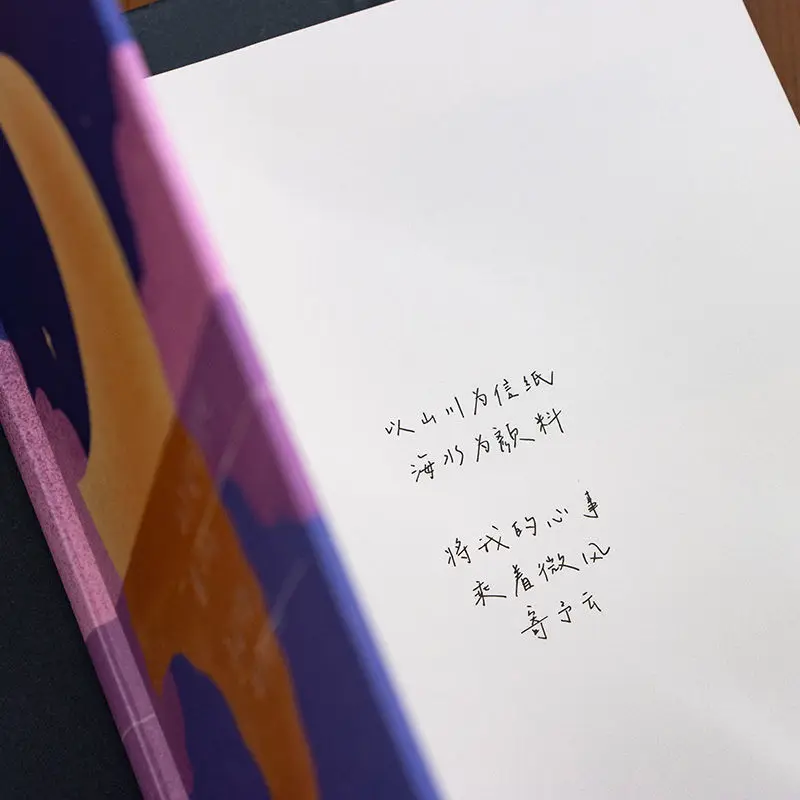 以山川为信纸
海水为颜料
将我的心事
乘着微风
寄予云